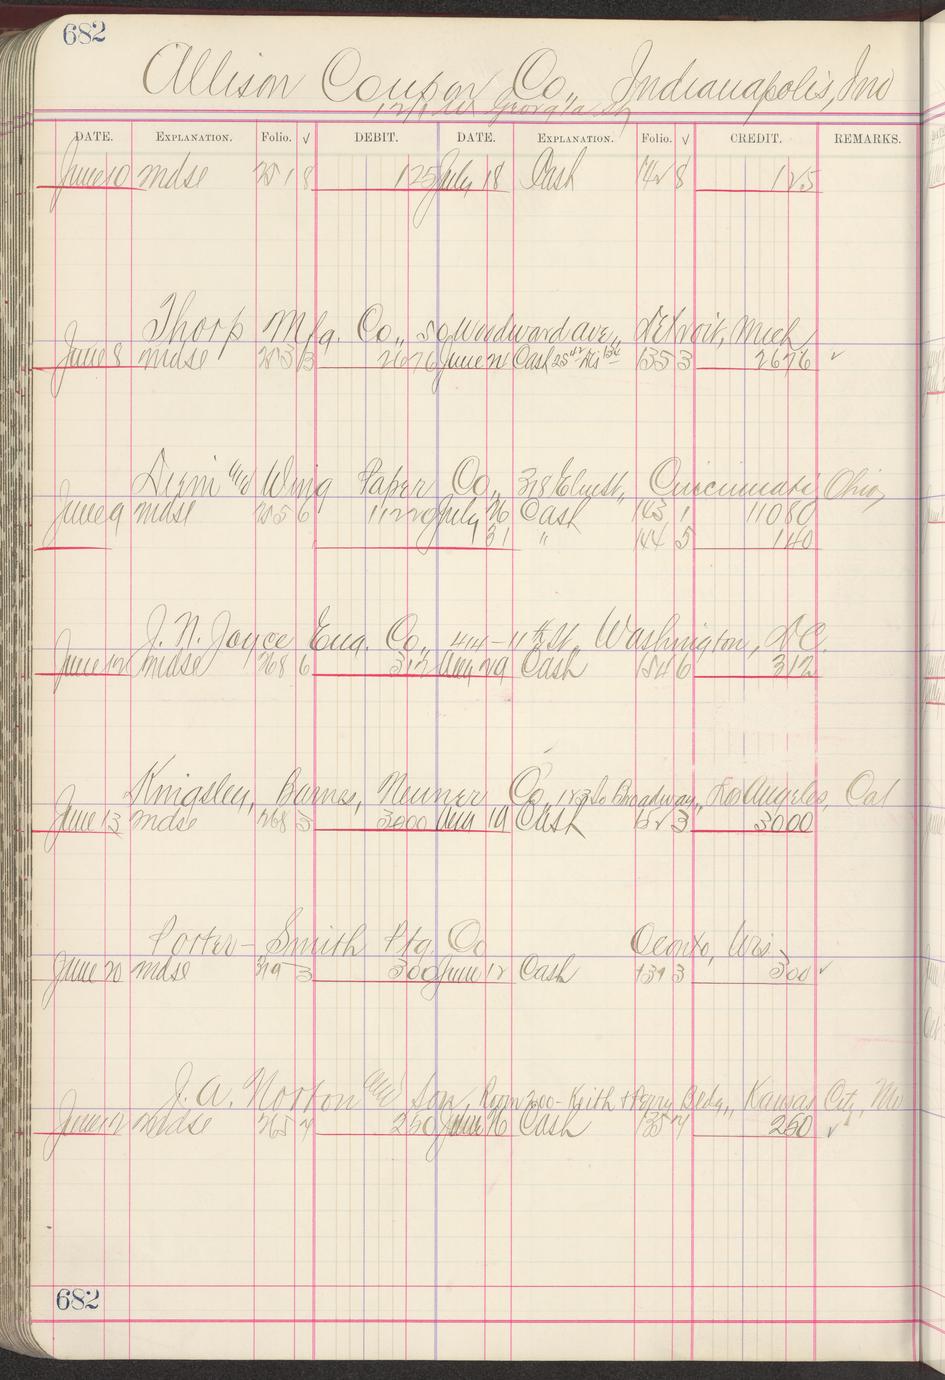 682
Allison Coupon Co., Indianapolis, Ind
Georgia St
DATE. EXPLANATION. Folio. √ DEBIT. DATE. EXPLANATION. Folio. √ CREDIT. REMARKS.
June 10 mdse 251 8 125 July 18 Cash 142 8 125
Thorp Mfg. Co., 50 Woodward ave., Detroit, Mich
June 8 mdse 253 3 2676 June 21 Cash 25 42 Dis 1 34 135 3 2676 ✓
and Wing Paper Co., 318 Elm st., Cincinnati, Ohio,
June 9 mdse 255 6 11220 July 26 Cash 143 1 11080
31 " 144 5 140
J. N. Joyce Eng. Co., 414-11th St., Washington, D.C.
June 12 mdse 268 6 312 Aug 29 Cash 154 6 312
Kingsley, Barnes, Neuner Co., 123 So Broadway, Los Angeles, Cal
June 13 mdse 268 3 3000 Aug 19 Cash 152 3 3000
Porter-Smith Ptg. Co Oconto, Wis
June 20 mdse 319 3 300 June 12 Cash 131 3 300 ✓
J. A. Norton and Son, Room 200- Keith & Perry Bldg., Kansas City, Mo
June 12 mdse 265 4 250 June 26 Cash 135 4 250 ✓
682